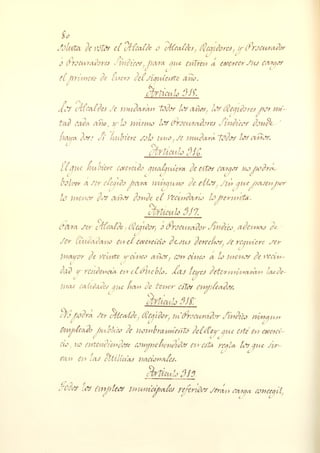 80
soluta de votos el Alcalde o Alcaldes, Regidores, y Procurador
ó Procuradores Síndicos, para que entren á exercer sus cargos
el primero de Enero del siguiente año.
Artículo 315.
Los Alcaldes se mudarán todos los años, los Regidores por mi-
tad cada año, y lo mismo los Procuradores Síndicos donde
haya dos: si hubiere solo uno, se mudará todos los años.
Artículo 316.
El que hubiere exercido qualquiera de estos cargos no podrá
bolver á ser elegido para ninguno de ellos, sin que pasen por
lo menos dos años donde el vecindario lo permita.
Artículo 317.
Para ser Alcalde, Regidor, ó Procurador Síndico, ademas de
ser Ciudadano en el exercicio de sus derechos, se requiere ser
mayor de veinte y cinco años, con cinco á lo menos de vecin-
dad y residencia en el Pueblo. Las leyes determinarán las de-
mas calidades que han de tener estos empleados.
Artículo 318.
No podrá ser Alcalde, Regidor, ni Procurador Síndico ningun
empleado publico de nombramiento del Rey que esté en exerci-
cio, no entendiendose comprehendidos en esta regla los que sir-
van en las Milicias nacionales.
Artículo 319.
Todos los empleos municipales referidos serán carga concegil,